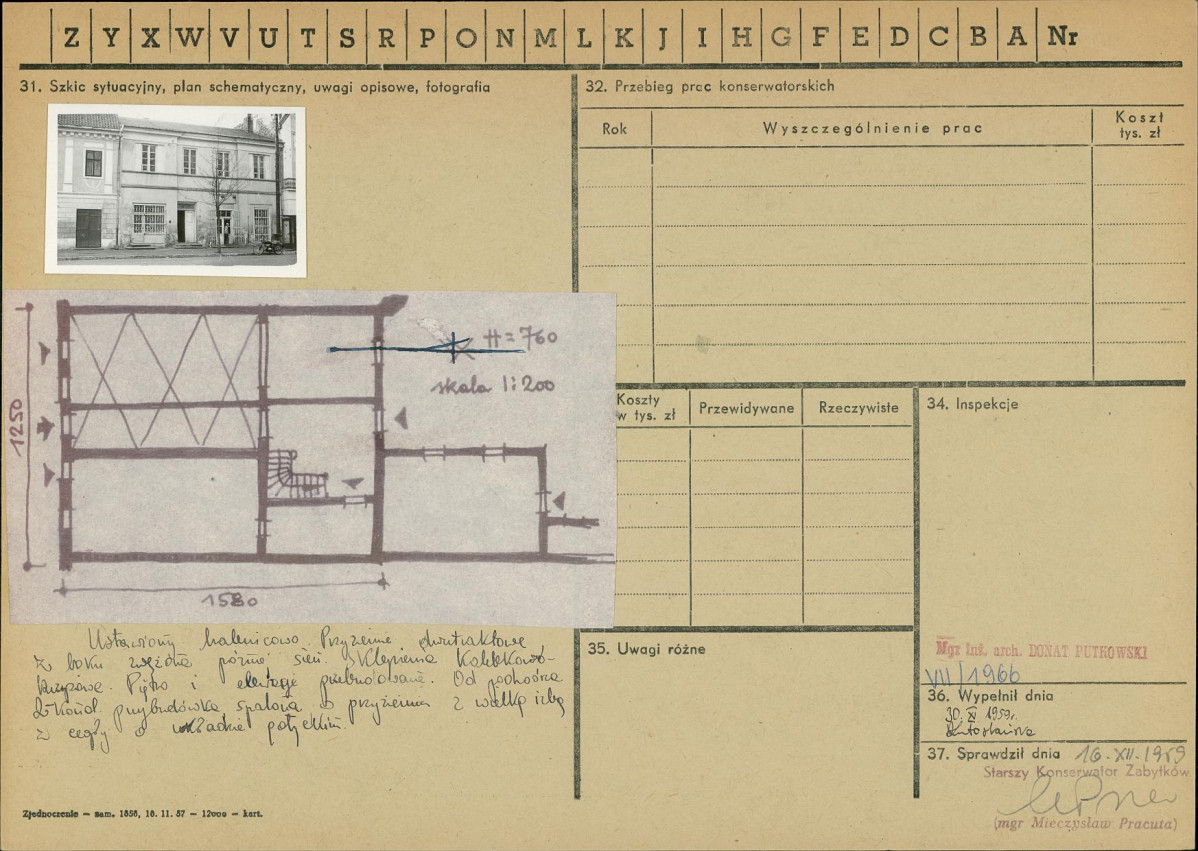 Z Y X W V U T S R P O N M L K J I H G F E D C B A Nr
31. Szkic sytuacyjny, plan schematyczny, uwagi opisowe, fotografia
32. Przebieg prac konserwatorskich
Rok
Wyszczególnienie prac
Koszt
tys. zł
H = 760
skala 1:200
1250
1580
Koszty
w tys. zł
Przewidywane
Rzeczywiste
34. Inspekcje
przyziemie dwutraktowe
z boku zwężona późna sień. Sklepienia kolebkowo-
krzyżowe. Piętro i elewacje przebudowane. Od podwórza
przybudówka w przyziemiu z wielką izbą
z cegły o układzie gotyckim.
35. Uwagi różne
Mgr inż. arch. DONAT PUTKOWSKI
VII/1966
36. Wypełnił dnia
30. XI 1959r.
37. Sprawdził dnia 16.XII.1959
Starszy Konserwator Zabytków
(mgr Mieczysław Pracuta)
Zjednoczenie — zam. 1858, 18. 11. 57 — 12000 — kart.